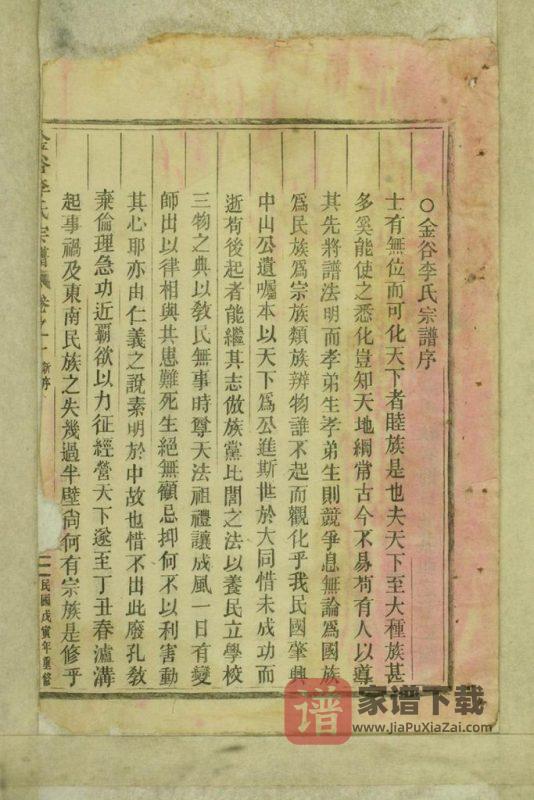 ○金谷李氏宗譜序
士有無位而可化天下者睦族是也夫天下至大種族甚
多奚能使之悉化豈知天地綱常古今不易苟有人以尊
其先將譜法明而孝弟生孝弟生則競爭息無論爲國族
爲民族爲宗族類族辨物誰不起而觀化乎我民國肇興
中山公遺囑本以天下爲公進斯世於大同惜未成功而
逝苟後起者能繼其志倣族黨比閭之法以養民立學校
三物之典以敎民無事時尊天法祖禮讓成風一日有變
師出以律相與共患難死生絕無顧忌抑何不以利害動
其心耶亦由仁義之說素明於中故也惜不出此廢孔敎
棄倫理急功近覇欲以力征經營天下遂至丁丑春瀘溝
起事禍及東南民族之失幾過半壁尙何有宗族是修乎
金谷李氏宗譜 卷之一 新序 一 民國戊寅年重修
譜 家谱下载
www.JiaPuXiaZai.com